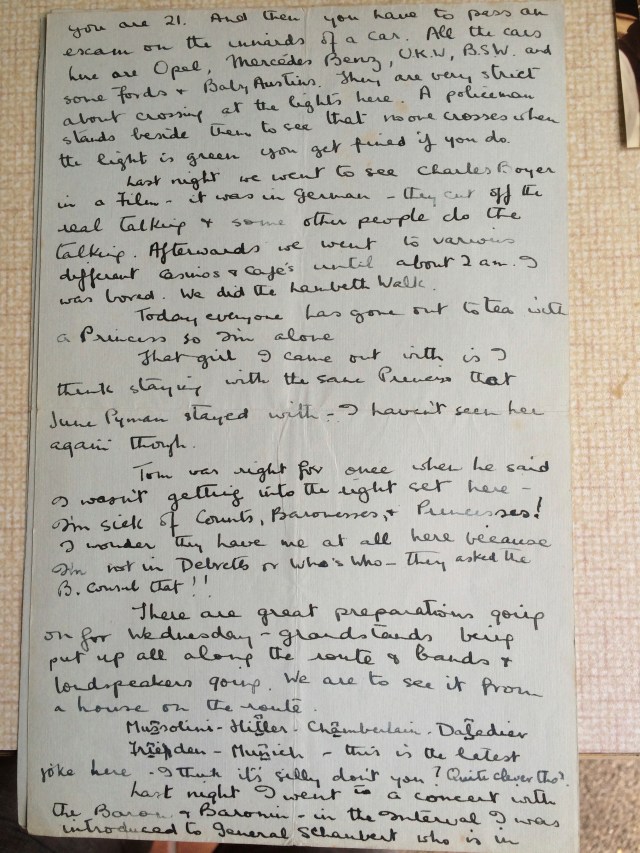 you are 21. And then you have to pass an
exam on the innards of a car. All the cars
here are Opel, Mercédes Benz, U.K.W, B.S.W. and
some Fords & Baby Austins. They are very strict
about crossing at the lights here. A policeman
stands beside them to see that no one crosses when
the light is green you get fined if you do.
Last night we went to see Charles Boyer
in a Film - it was in German - they cut off the
real talking & some other people do the
talking. Afterwards we went to various
different Casinos & Café's until about 2 am. I
was bored. We did the Lambeth Walk.
Today everyone has gone out to tea with
a Princess so I'm alone
That girl I came out with is I
think staying with the same Princess that
June Pyman stayed with - I haven't seen her
again though.
Tom was right for once when he said
I wasn't getting into the right set here -
I'm sick of Counts, Baronesses, & Princesses!
I wonder they have me at all here because
I'm not in Debretts or Who's Who - they asked the
B. Consul that!!
There are great preparations going
on for Wednesday - grandstands being
put up all along the route & bands &
loudspeakers going. We are to see it from
a house on the route.
Mussolini - Hitler - Chamberlain - Daladier
Frieden - Munich - this is the latest
joke here - I think it's silly don't you? Quite clever tho'.
Last night I went to a concert with
the Baron & Baronin - in the Interval I was
introduced to General Schaubert who is in